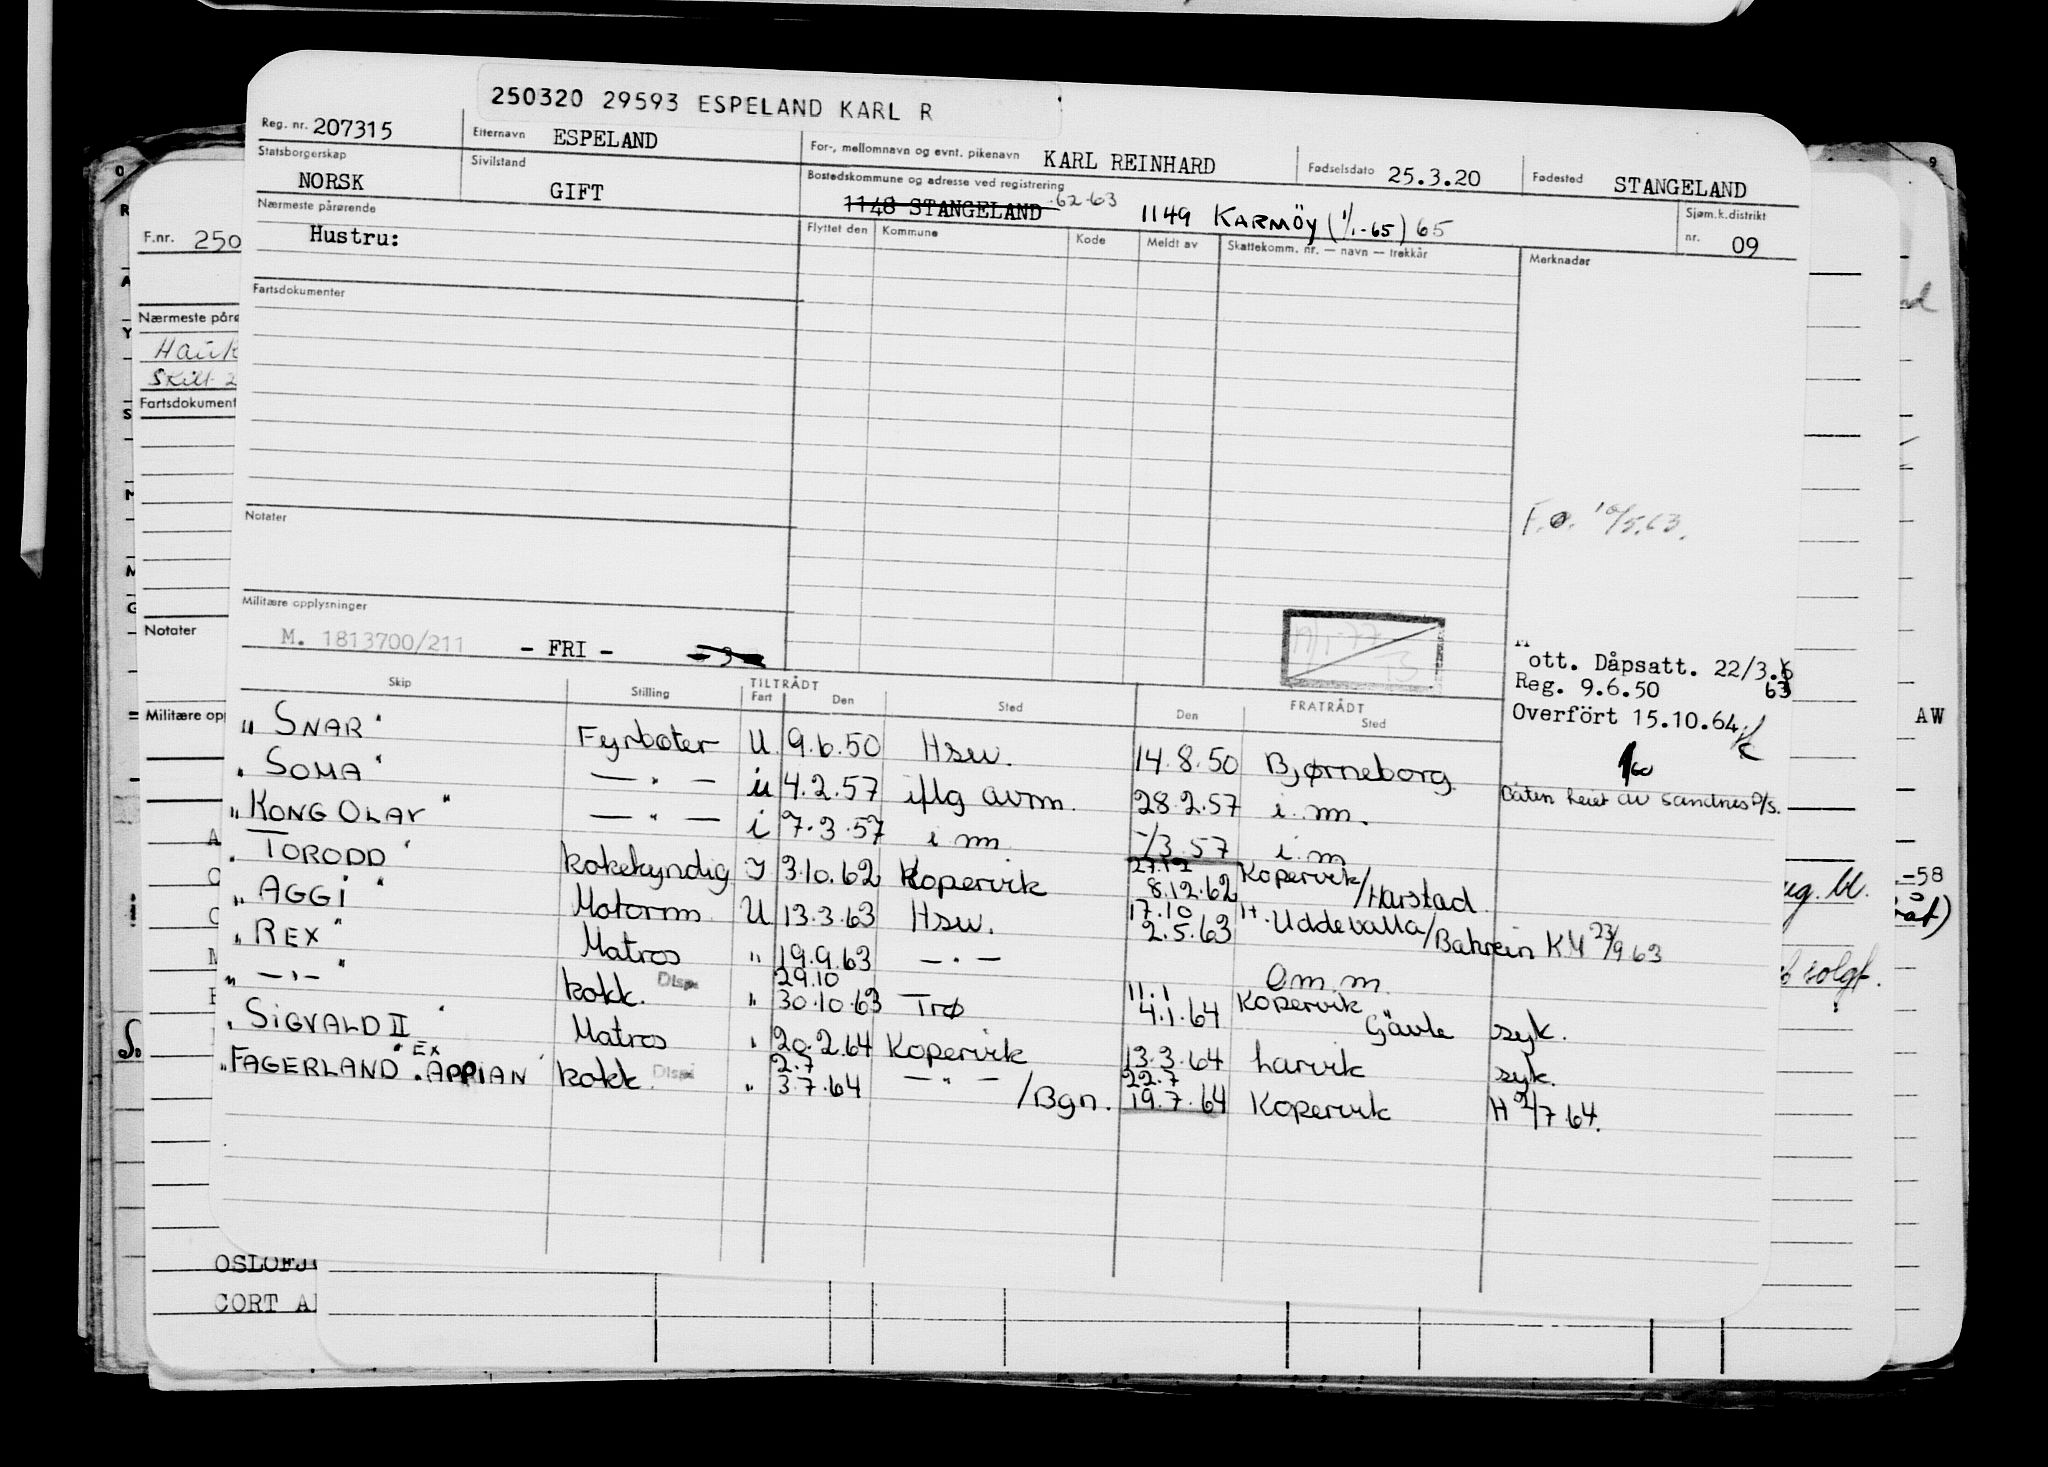 250320 29593 ESPELAND KARL R
Reg. nr. 207315 Etternavn ESPELAND For-, mellomnavn og evnt. pikenavn KARL REINHARD Fødselsdato 25.3.20 Fødested STANGELAND
Statsborgerskap NORSK Sivilstand GIFT Bostedskommune og adresse ved registrering 1148 STANGELAND .62-63 1149 KARMÖY (1/1-65) 65 Sjøm.k.distrikt nr. 09
Nærmeste pårørende Flyttet den Kommune Kode Meldt av Skattekomm. nr. — navn — trekkår Merknader
Hustru:
Fartsdokumenter
F.ø. 10/5.63.
Notater
Militære opplysninger
M. 1813700/211 - FRI -
ott. Dåpsatt. 22/3. 63
Reg. 9.6.50
Overfört 15.10.64
Skip Stilling TILTRÅDT Fart Den Sted FRATRÅDT Den Sted
"SNAR" Fyrbøter U 9.6.50 Hsw. 14.8.50 Bjørneborg
"SOMA" — " — u 4.2.57 iflg avm. 28.2.57 i. m. Båten leiet av Sandnes D/S.
"KONG OLAV" — " — i 7.3.57 i m -/3.57 i.m
"TORODD" kokekyndig I 3.10.62 Kopervik 27.12 8.12.62 Kopervik/Harstad
"AGGI" Motorm. U 13.3.63 Hsw. 17.10 2.5.63 H. Uddevalla/Bahrein KM 23/9 63
"REX" Matros " 19.9.63 — " — Om.m.
" — " — " kokk. Disp. " 29.10 30.10.63 Trø 11.1 4.1.64 Kopervik Gävle syk.
"SIGVALD II" Matros " 20.2.64 Kopervik 13.3.64 Larvik syk.
"FAGERLAND" EX "APPIAN" kokk. Disp. " 2.7 3.7.64 — " — /Bgn. 22.7 19.7.64 Kopervik H 2/7.64.
F.nr. 250
Nærmeste påre
Hauk
Skilt 2
Fartsdokument
Notater
Militære opp
OSLOFJ
CORT A
AW
-58
ug. bl.
solgt.